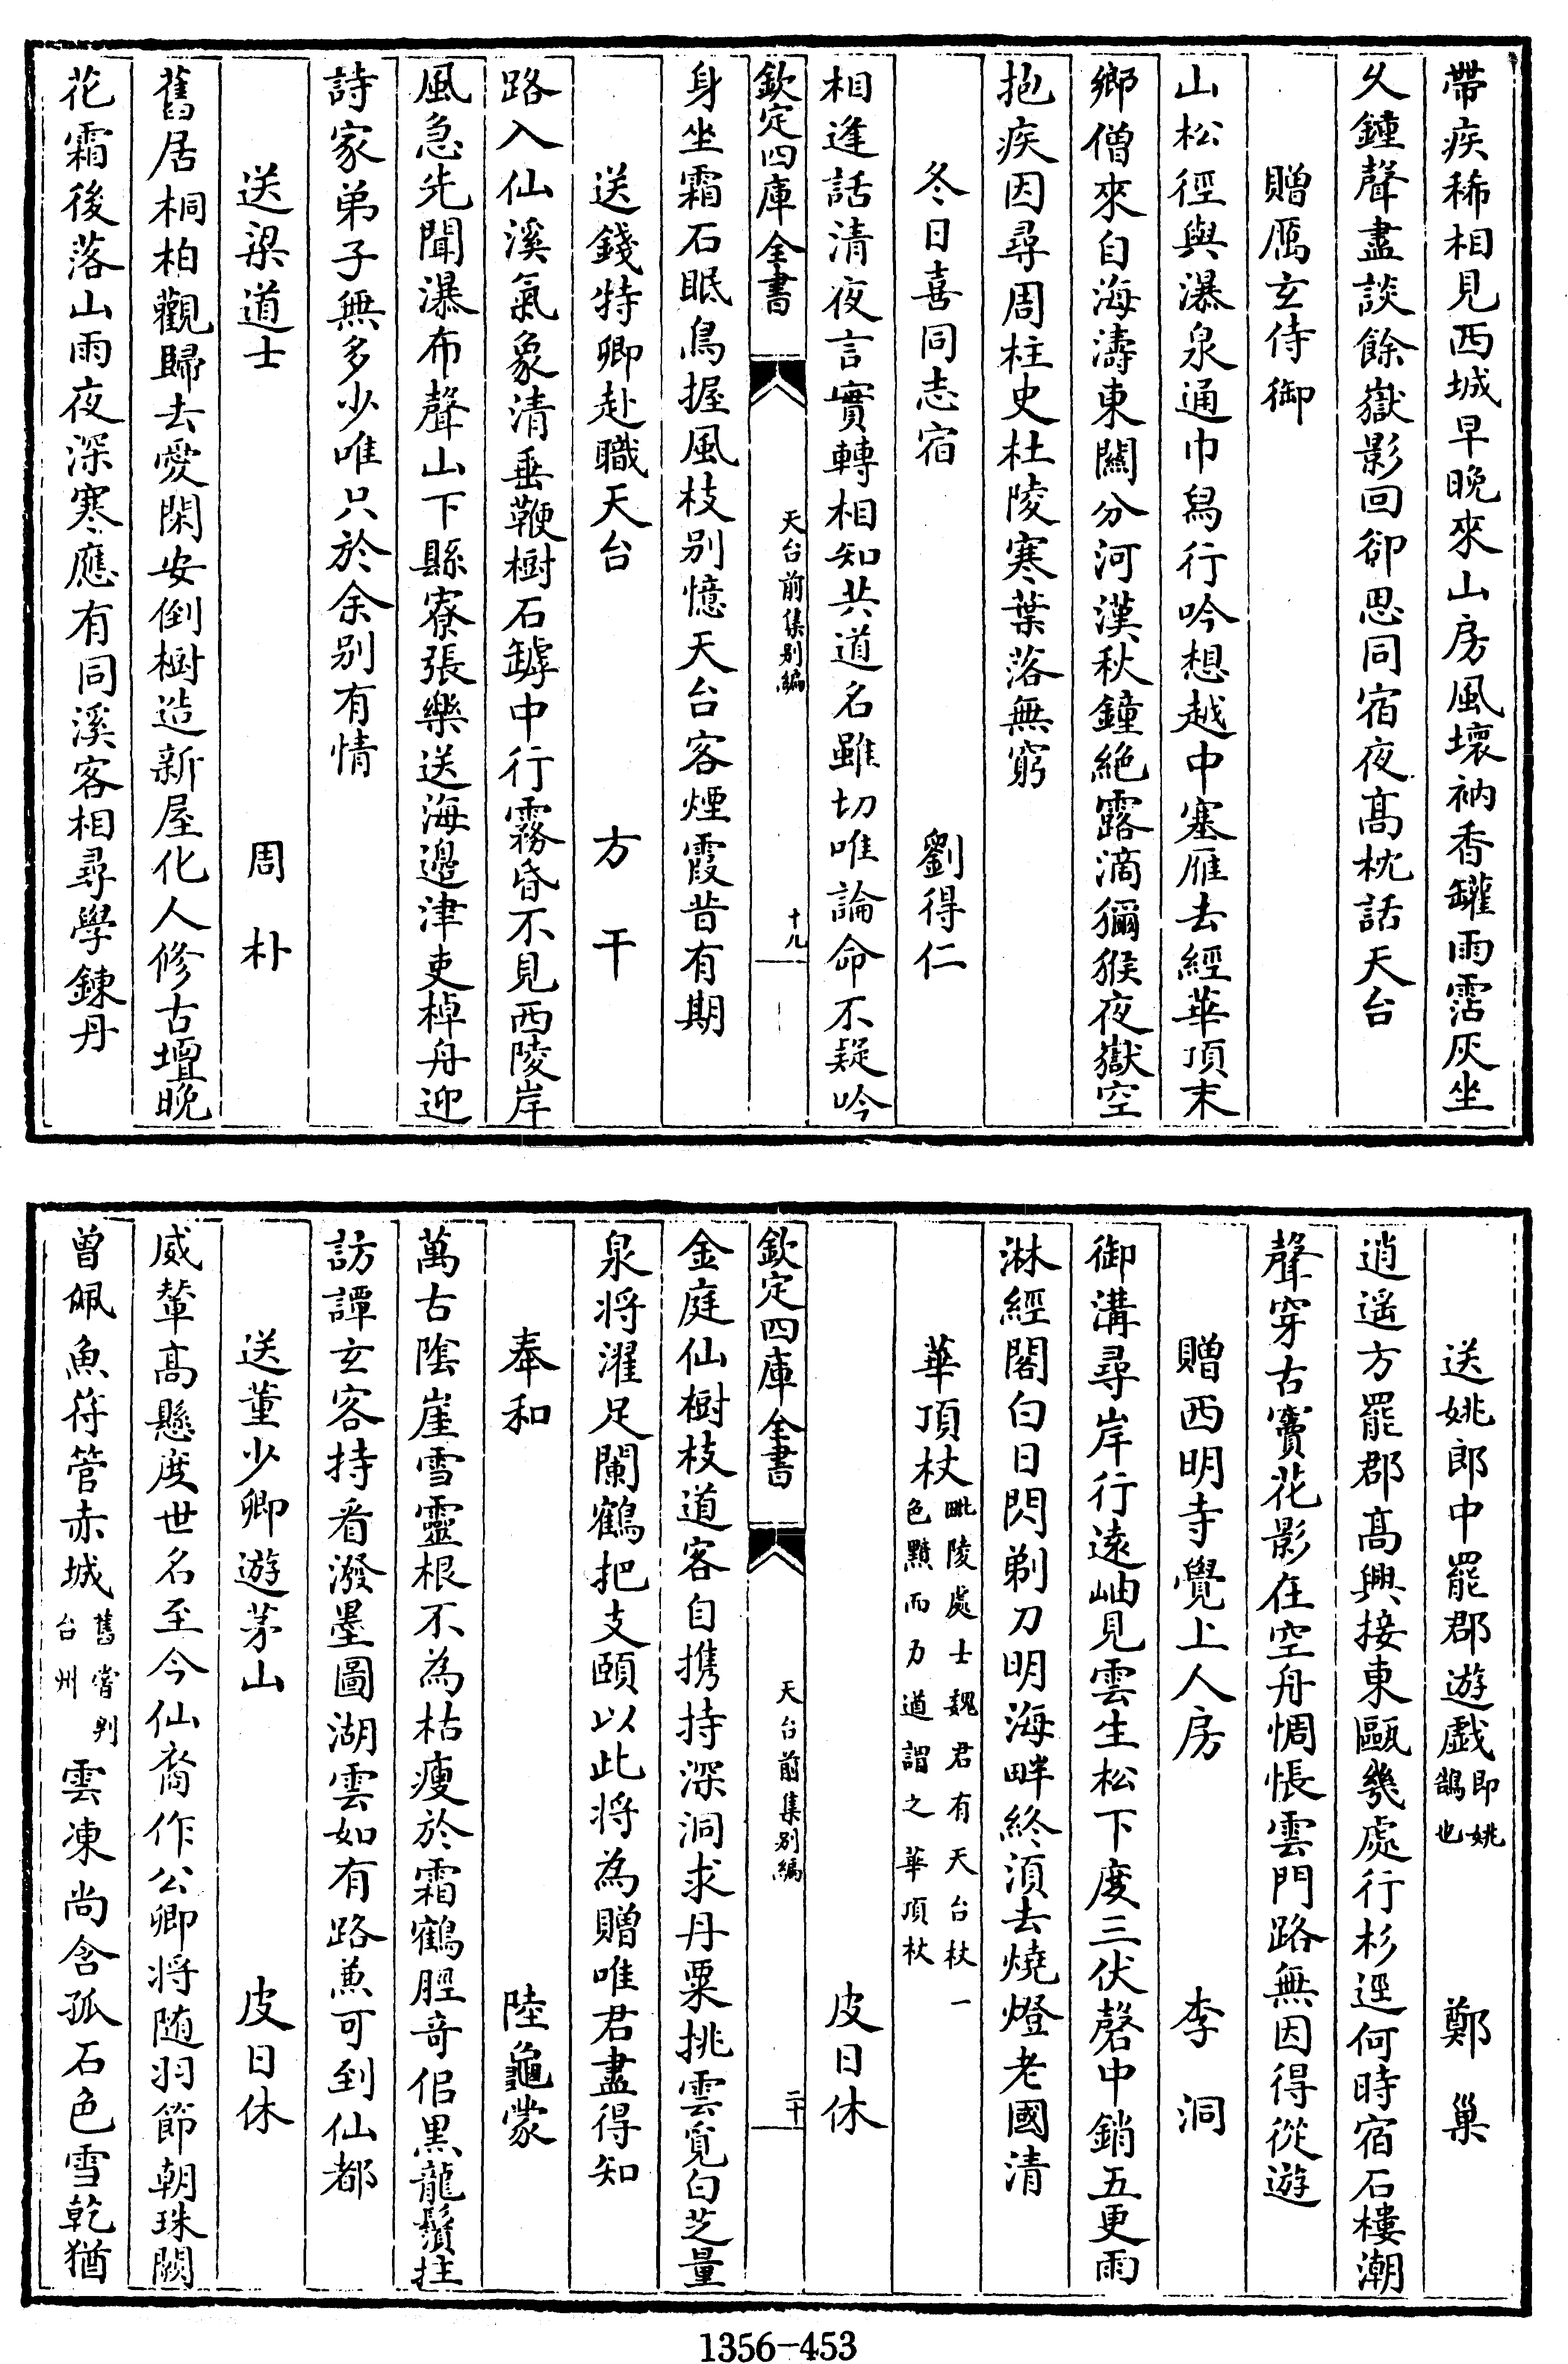 帶疾稀相見西城早晚來山房風壞衲香罐雨霑灰坐
久鐘聲盡談餘嶽影回卻思同宿夜髙枕話天台
贈厲玄侍御
山松徑與瀑泉通巾舄行吟想越中塞雁去經華頂末
鄉僧來自海濤東關分河漢秋鐘絕露滴獼猴夜嶽空
抱疾因尋周柱史杜陵寒葉落無窮
冬日喜同志宿 劉得仁
相逢話清夜言實轉相知共道名雖切唯論命不疑吟
欽定四庫全書 天台前集别編 十九
身坐霜石眠鳥握風枝别憶天台客煙霞昔有期
送錢特卿赴職天台 方干
路入仙溪氣象清垂鞭樹石罅中行霧昏不見西陵岸
風急先聞瀑布聲山下縣寮張樂送海邊津吏棹舟迎
詩家弟子無多少唯只於余别有情
送梁道士 周朴
舊居桐柏觀歸去愛閑安倒樹造新屋化人修古壇晚
花霜後落山雨夜深寒應有同溪客相尋學鍊丹
送姚郎中罷郡遊戯即姚鵠也 鄭巢
逍遥方罷郡髙興接東甌幾處行杉逕何時宿石樓潮
聲穿古竇花影在空舟惆悵雲門路無因得從遊
贈西明寺覺上人房 李洞
御溝尋岸行遠岫見雲生松下度三伏磬中銷五更雨
淋經閣白日閃剃刀明海畔終須去燒燈老國清
華頂杖毗陵處士魏君有天台杖一色黯而力遒謂之華頂杖
皮日休
欽定四庫全書 天台前集别編 二十
金庭仙樹枝道客自携持深洞求丹粟挑雲覓白芝量
泉將濯足闌鶴把支頤以此將為贈唯君盡得知
奉和 陸龜蒙
萬古陰崖雪靈根不為枯瘦於霜鶴脛竒侣黒龍鬚拄
訪譚玄客持看潑墨圖湖雲如有路兼可到仙都
送董少卿遊茅山 皮日休
威輦髙懸度世名至今仙裔作公卿將随羽節朝珠闕
曽佩魚符管赤城舊嘗判台州雲凍尚含孤石色雪乾猶
1356-453